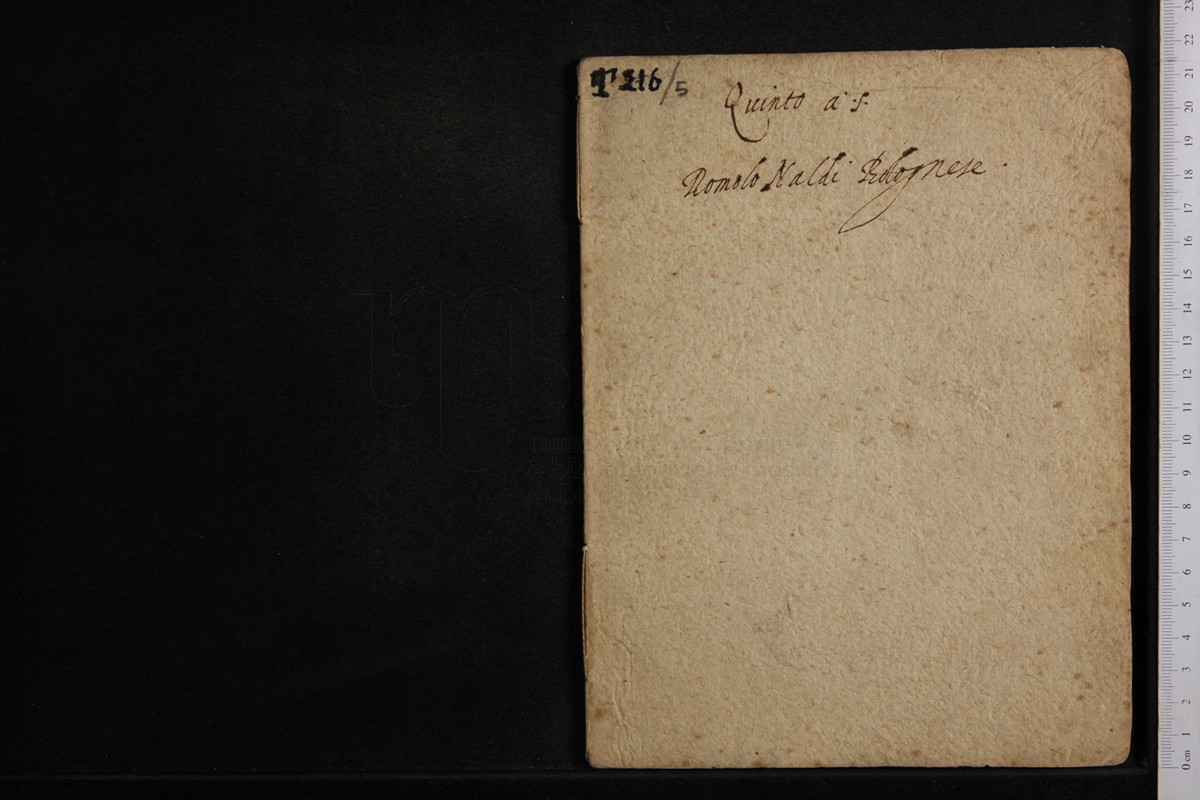 T 216/5
Quinto a' 5.
Romolo Naldi Bolognese.
23
22
21
20
19
18
17
16
15
14
13
12
11
10
9
8
7
6
5
4
3
2
1
0 cm